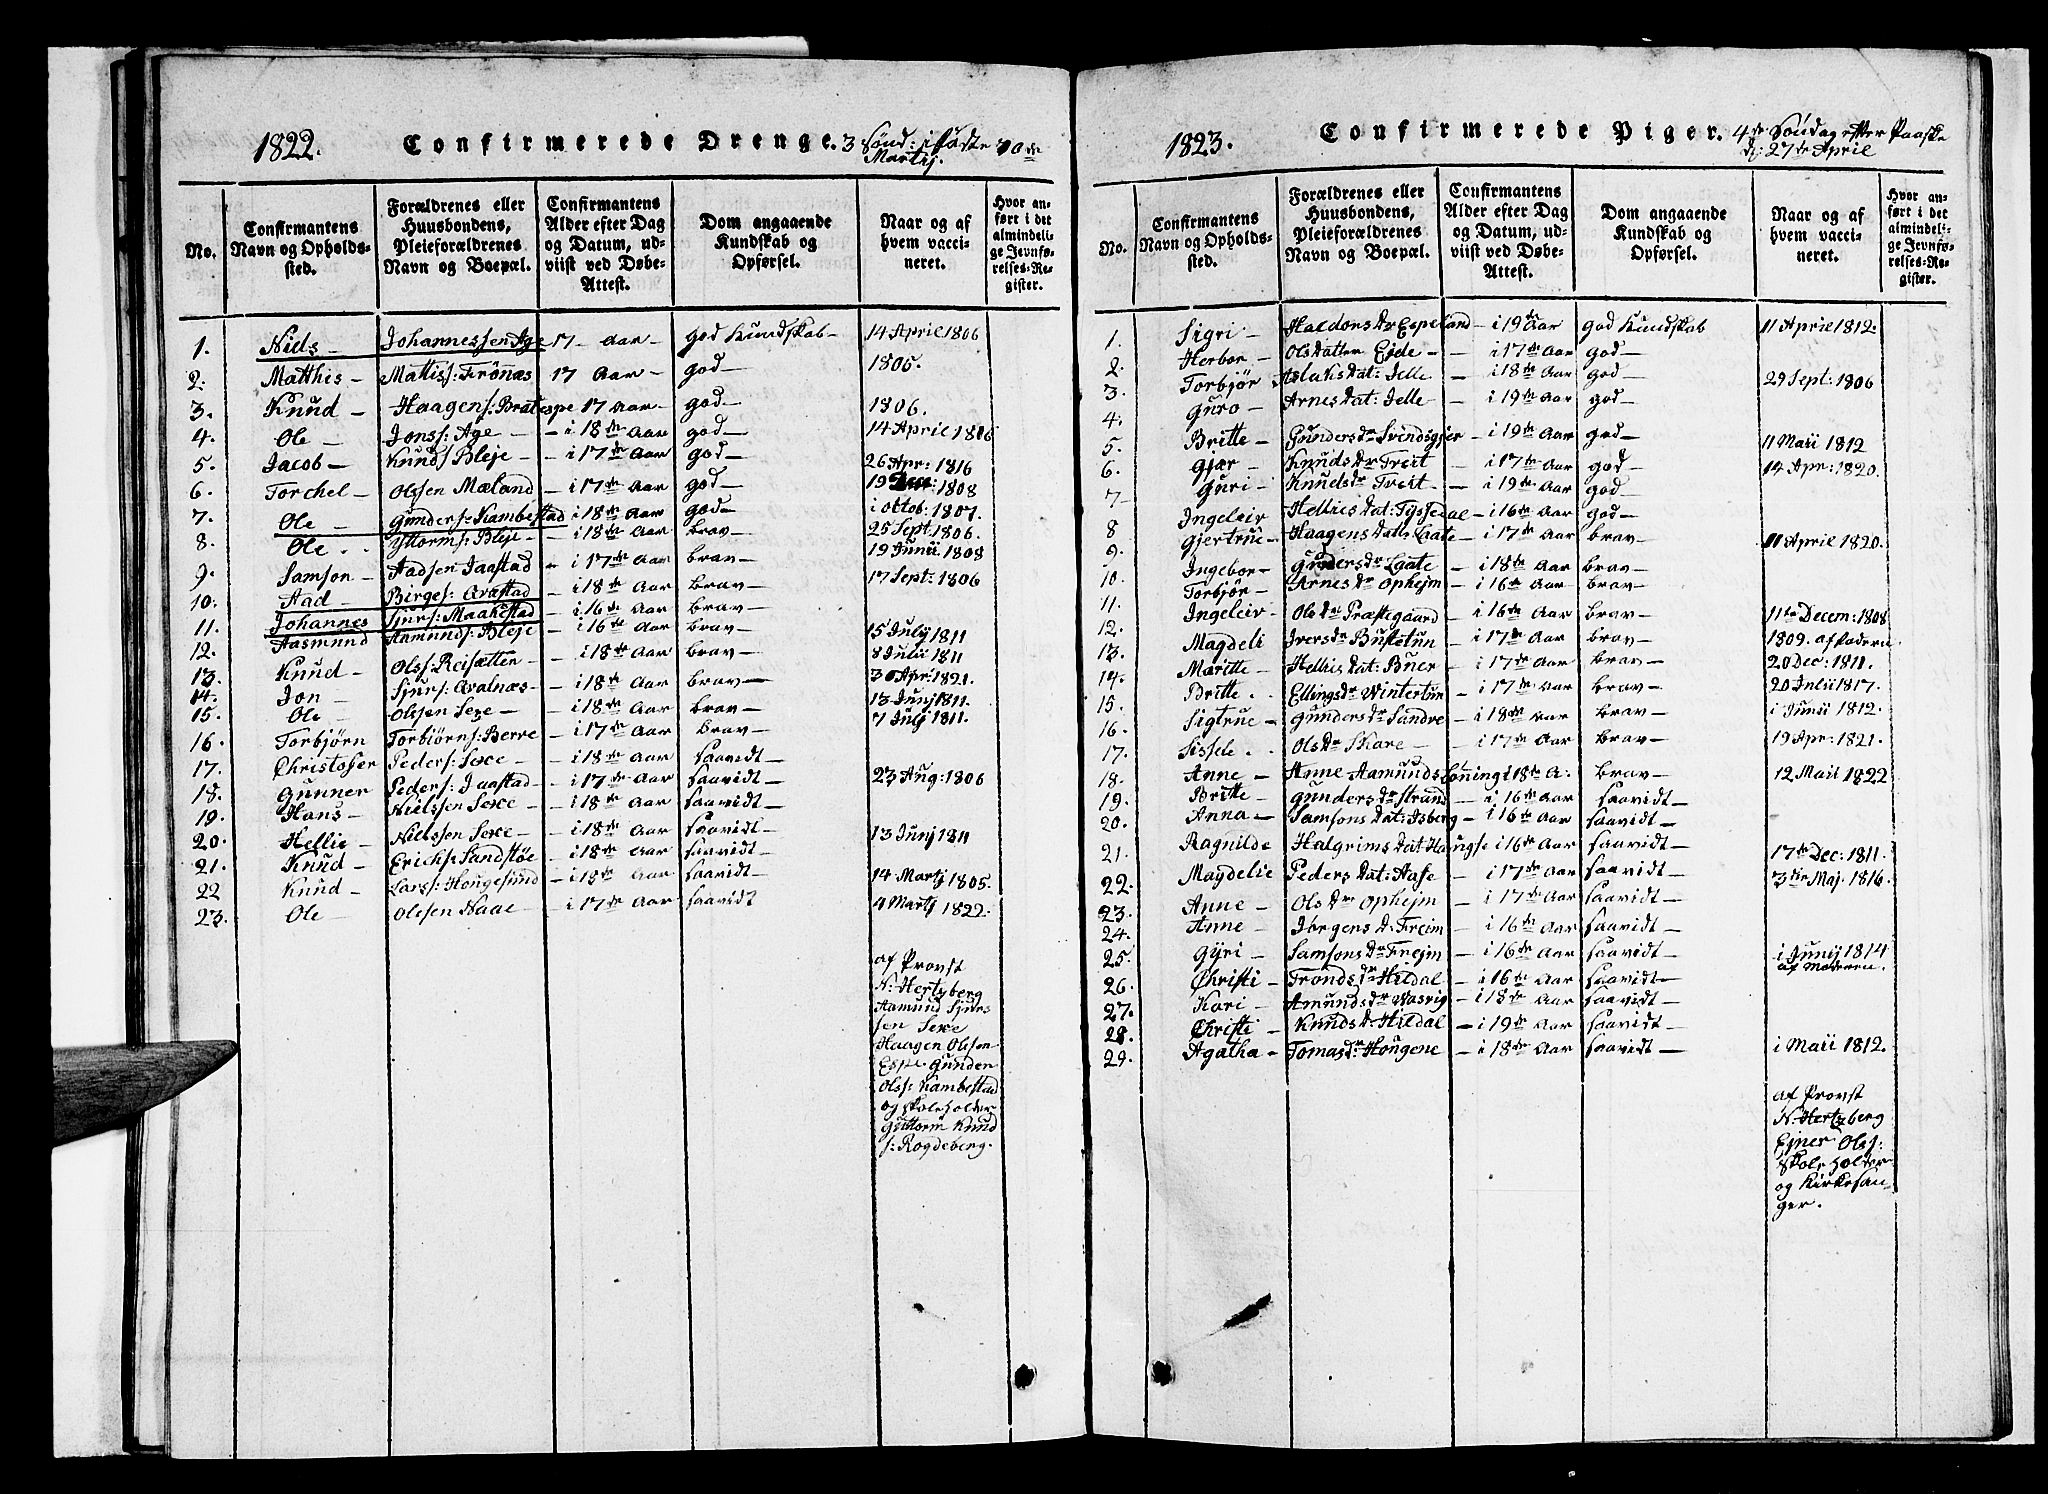 1822. Confirmerede Drenge. 3 Sønd: i Faste 10de
Martij.
No.
Confirmantens
Navn og Opholds-
sted.
Forældrenes eller
Huusbondens,
Pleieforældrenes
Navn og Boepæl.
Confirmantens
Alder efter Dag
og Datum, ud-
viist ved Døbe-
Attest.
Dom angaaende
Kundskab og
Opførsel.
Naar og af
hvem vacci-
neret.
Hvor an-
ført i det
almindeli-
ge Jevnfø-
relses-Re-
gister.
1. Niels – Johannessen Age 17 – Aar – god Kundskab – 14 April 1806
2. Matthis – Mattiss: Trönæs 17 Aar – god – 1805.
3. Knud – Haagens: Bratespe 17 Aar – god – 1806.
4. Ole – Jonss: Age – – i 18de Aar god – 14 April 1806
5. Jacob – Knuds Bleje – – i 17de Aar god – 26 Apr: 1816
6. Torchel – Olssen Mæland – i 17de Aar god – 19 1808
7. Ole – Gunders: Kambestad i 18de Aar god – i Octob: 1807.
8. Ole . . Yttorms: Bleje – – i 18de Aar brav – 25 Sept: 1806.
9. Samson – Aadsen Jaastad – i 17de Aar brav – 19 Junii 1808
10. Aad – Birges: Aræstad – i 18de Aar brav – 17 Sept: 1806
11. Johannes Sjurs: Maakestad – i 16de Aar brav –
12. Aasmund Aamunds: Bleje – i 16de Aar brav – 15 July 1811
13. Knud – Olss: Reisætten – – i 18de Aar brav – 8 Julii 1811
14. Jon – Sjurs: Aralnæs – – i 18de Aar brav – 30 Apr: 1821.
15. Ole – Olssen Sexe – – i 18de Aar brav – 13 Junj 1811.
16. Torbjørn Torbiörns: Berve – i 17de Aar brav – 7 Julj 1811.
17. Christoffer Peders: Sexe – – i 18de Aar saavidt –
18. Gunner Peders: Jaastad – i 17de Aar saavidt – 23 Aug: 1806
19. Hans – Nielssen Sexe – – i 18de Aar saavidt –
20. Hellie – Nielssen Sexe – – i 18de Aar saavidt – 13 Junj 1811
21. Knud – Erichs: Sandstöe – i 18de Aar saavidt –
22 Knud – Larss: Hougesund – i 18de Aar saavidt – 14 Martj 1805.
23. Ole – Olesen Naae – – i 17de Aar saavidt 4 Martj 1822.
af Provst
N: Hertzberg
Aamund Sjurs
sen Sexe
Haagen Olsen
Espe Gunden
Olss: Kambestad
og Skoleholder
Guttorm Knud
s: Rogdeberg.
1823. Confirmerede Piger. 4de Söndag efter Paaske
d: 27de April
No.
Confirmantens
Navn og Opholds-
sted.
Forældrenes eller
Huusbondens,
Pleieforældrenes
Navn og Boepæl.
Confirmantens
Alder efter Dag
og Datum, ud-
viist ved Døbe-
Attest.
Dom angaaende
Kundskab og
Opførsel.
Naar og af
hvem vacci-
neret.
Hvor an-
ført i det
almindeli-
ge Jevnfø-
relses-Re-
gister.
1. Sigri – Haldors Dr Espeland – i 19de Aar god Kundskab 11 April 1812.
2. Herbor – Olsdatter Ejde – – i 17de Aar god –
3. Torbjör Aslaks Dat: Jelle – i 18de Aar god – 29 Sept: 1806
4. Guro – Arnes Dat: Jelle – – i 19de Aar god –
5. Britte – Gunders dr Svindsgjer – i 19de Aar god – 11 Maii 1812
6. Gjær – Knuds Dr Freit – i 17de Aar god – 14 Apr: 1820.
7 – Guri – Knuds dr Freit – – i 19de Aar god –
8 Ingeleiv Hellies Dat: Tyssedal – i 16de Aar god –
9. Gjertrue – Haagens Datt: Laate – i 17de Aar brav – 11 April 1820.
10. Ingebor – Gunders dr Laate – i 18de Aar brav –
11. Torbjör – Arnes Dr Ophejm – i 16de Aar brav –
12. Ingeleiv Ols Dr Præstegaard – i 16de Aar brav – 11te Decem: 1808
13. Magdeli Ivers Dr Bustetun – i 17de Aar brav – 1809. af Faderen
14. Maritte – Hellies Dat: Buer – i 17de Aar brav – 20 Dec: 1811.
15. Britte . Ellings Dr Wintertün – i 17de Aar brav – 20 Julii 1817.
16. Sigtrue – Gunders Dr Sandve – i 18de Aar brav – i Junii 1812.
17. Sissele . Ols Dr Skare – – i 17de Aar brav – 19 Apr: 1821.
18. Anne – Anne Aamunds Löning i 18de A: brav – 12 Maii 1822
19. Britte – Gunders Dr Strand – i 16de Aar saavidt –
20. Anna – Samsons Dat: Isberg – i 16de Aar saavidt –
21. Ragnilde Halgrims Dat Haugse i 16de Aar saavidt – 17de Dec: 1811.
22. Magdelie Peders Dat: Aase – i 17de Aar saavidt – 3die Maj. 1816.
23. Anne – Ols Dr Ophejm – i 17de Aar saavidt –
24. Anne – Jörgens Dr Freim – i 16de Aar saavidt –
25. Gyri – Samsons Dr Frejm – i 16de Aar saavidt – i Junij 1814
af Moderen.
26. Christi – Tronds Dr Hildal – i 16de Aar saavidt –
27. Kari – Amunds Dr Wasvig – i 18de Aar saavidt –
28. Christi – Knuds Dr Hildal – i 19de Aar saavidt –
29. Agatha – Tomas Dr Hougene – i 18de Aar saavidt – i Maii 1812.
af Provst
N. Hertzberg
Ejner Olss:
Skoleholder
og Kirkesan-
ger.